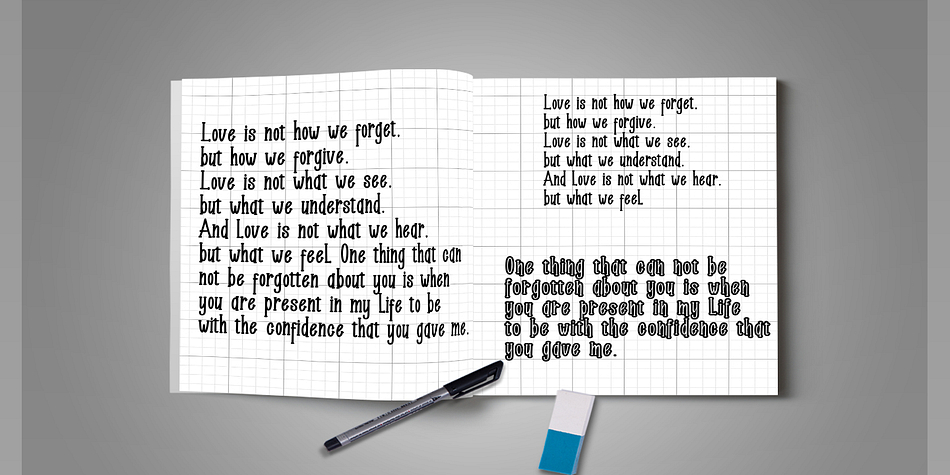 Love is not how we forget.
but how we forgive.
Love is not what we see.
but what we understand.
And Love is not what we hear.
but what we feel. One thing that can
not be forgotten about you is when
you are present in my Life to be
with the confidence that you gave me.
Love is not how we forget.
but how we forgive.
Love is not what we see.
but what we understand.
And Love is not what we hear.
but what we feel.
One thing that can not be
forgotten about you is when
you are present in my Life
to be with the confidence that
you gave me.